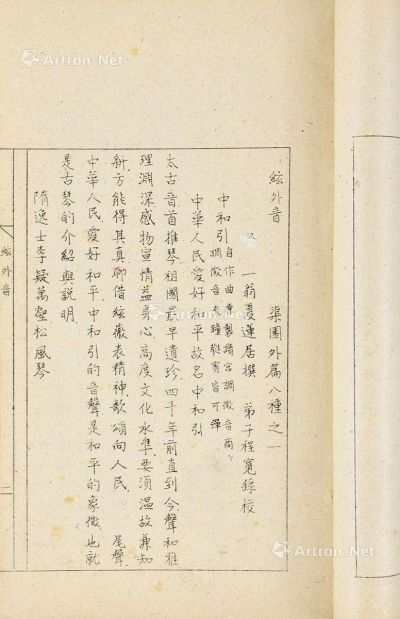 絃外音　渠園外篇八種之一
一翁夏蓮居撰　弟子程寬錄校
中和引 自作曲兼製譜宮調徵音商
調徵音
中華人民愛好和平故名中和引
太古音首推琴祖國最早遺珍四千年前直到今聲和雅
理淵深感物宣情益身心高度文化水準要須溫故兼知
新方能得其真聊借絃徽表精神歌頌向人民　尾聲
中華人民愛好和平中和引的音聲是和平的象徵也就
是古琴的介紹與說明
隋逸士李疑萬壑松風琴
絃外音
二
Artron.Net
Artron.Net
Artron.Net
Artron.Net